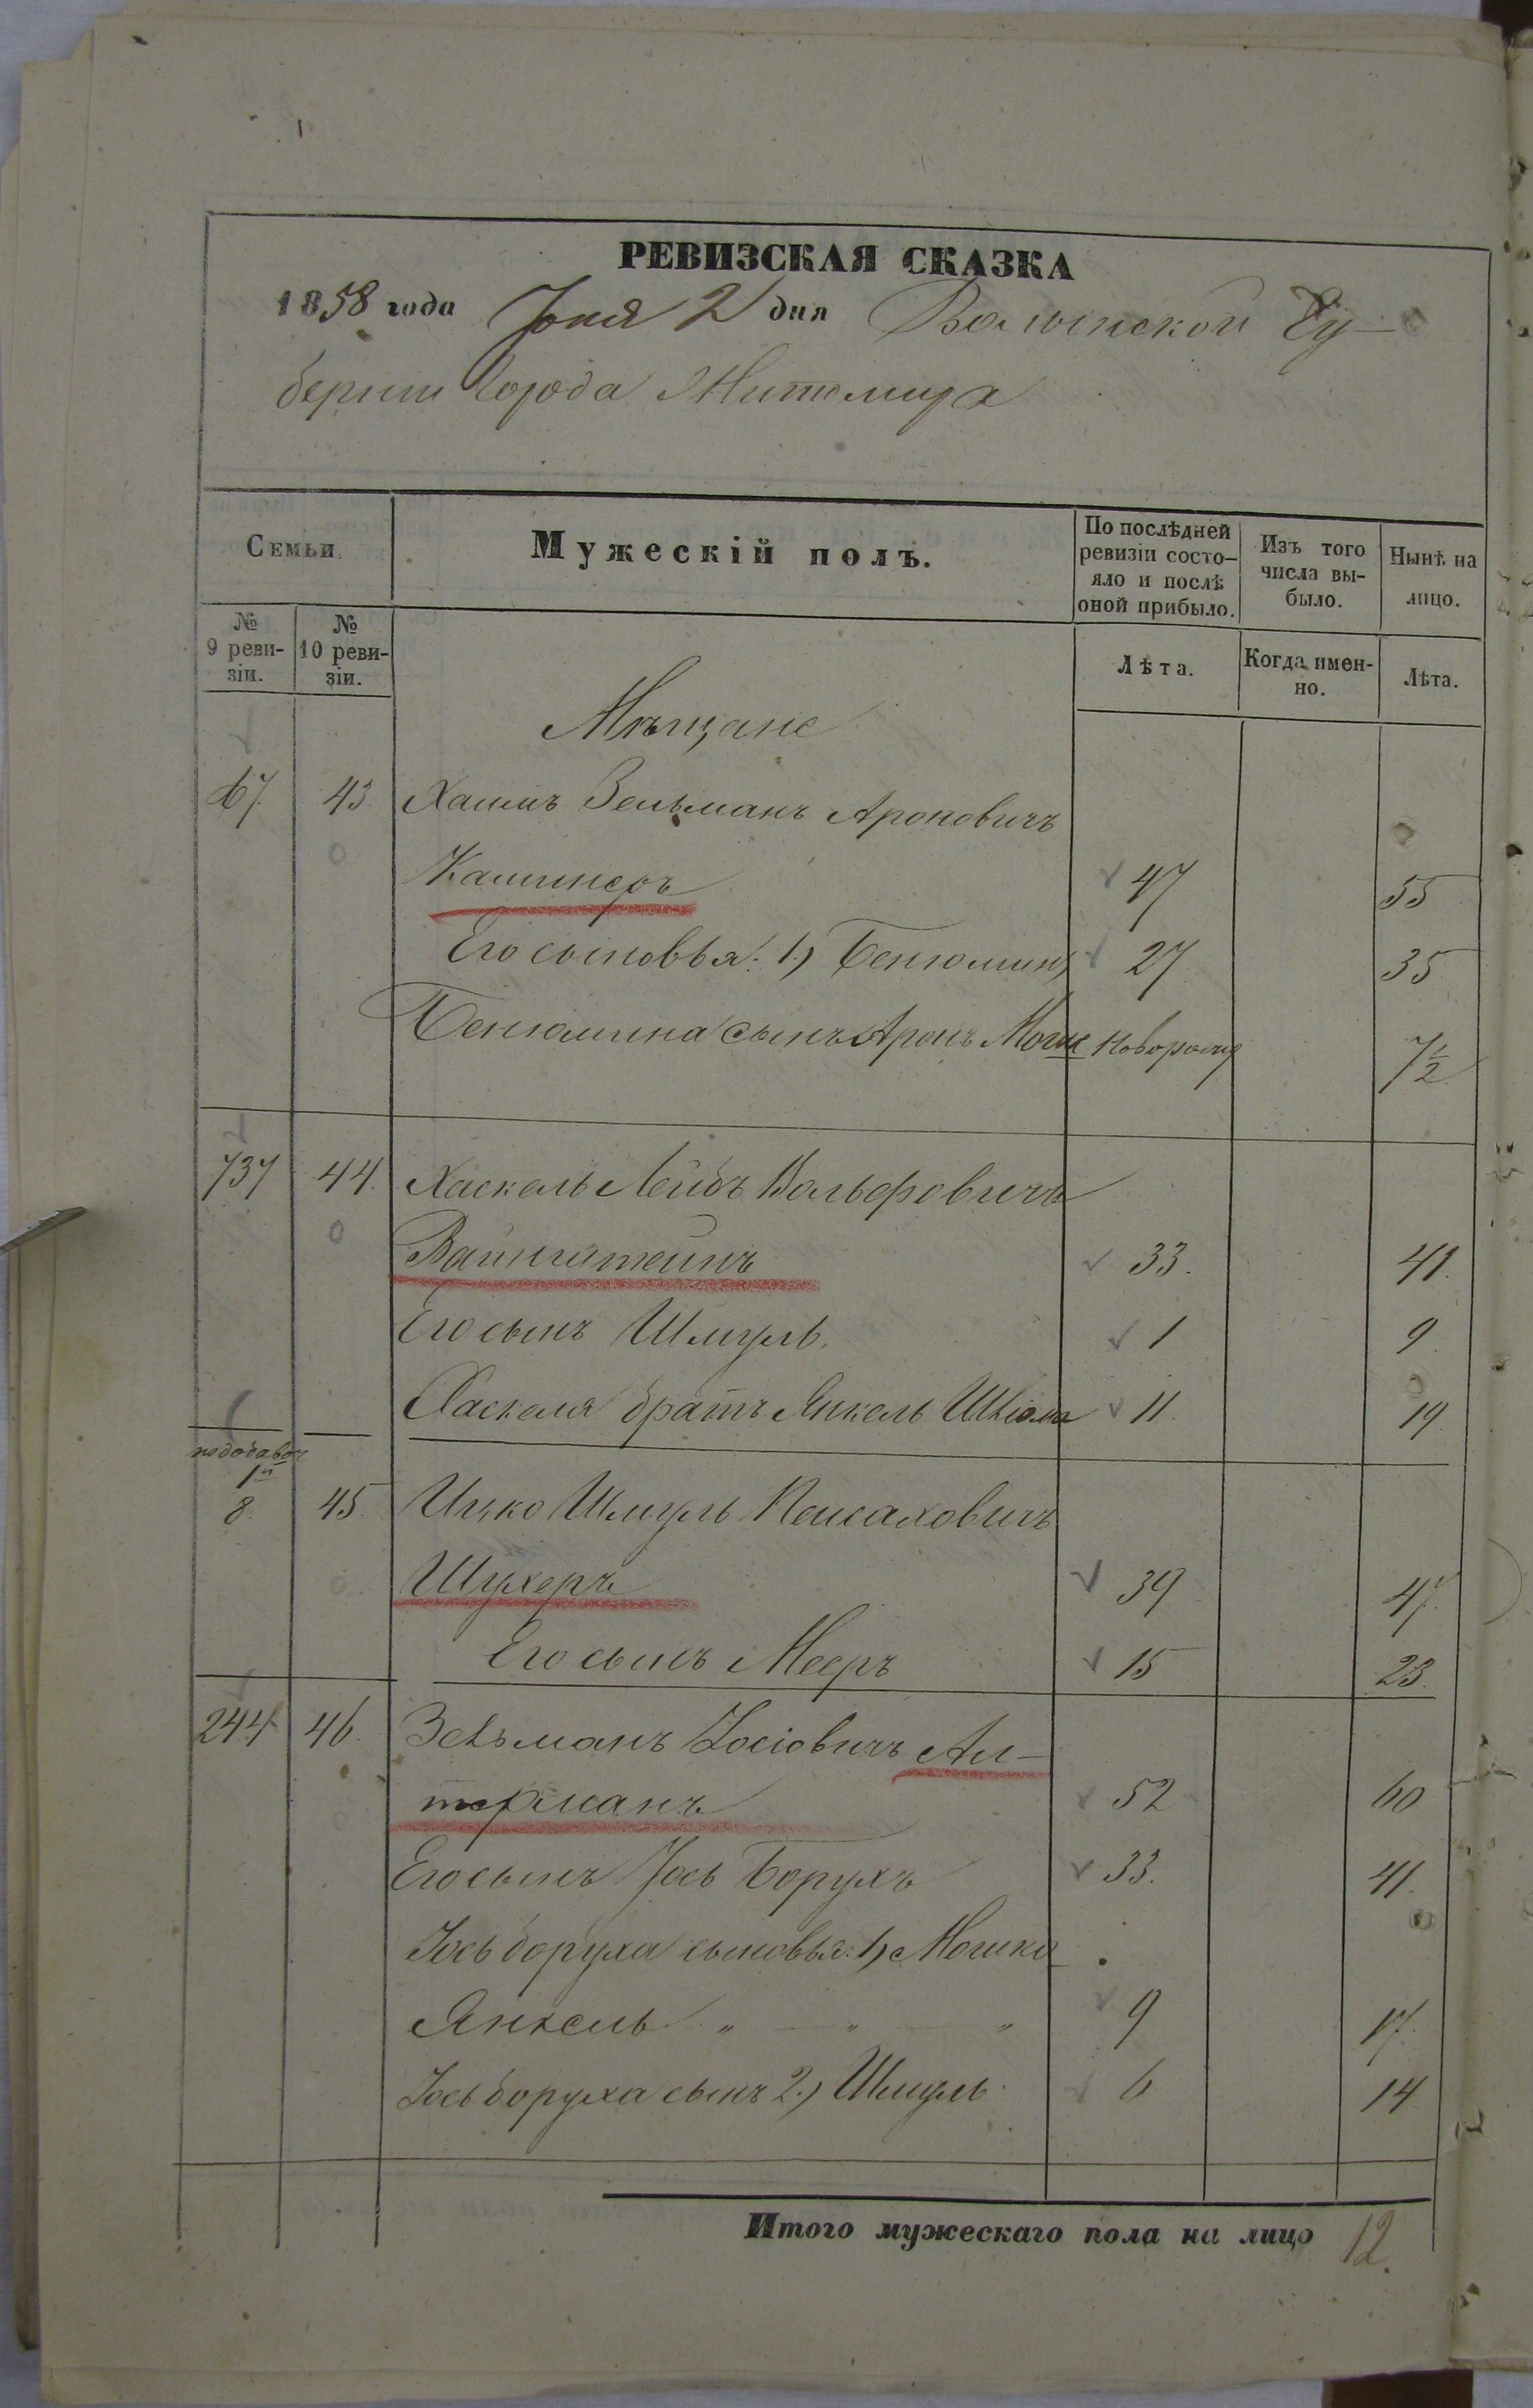 РЕВИЗСКАЯ СКАЗКА
1858 года Іюня 2 дня Волынской Гу-
берніи Города Житомира
Семьи.
Мужескій полъ.
По послѣдней ревизіи состо-яло и послѣ оной прибыло.
Изъ того числа вы-было.
Нынѣ на лицо.
№ 9 реви-зіи.
№ 10 реви-зіи.
Лѣта.
Когда имен-но.
Лѣта.
Мѣщане
67 43 Хаимъ Зельманъ Ароновичъ
47 55
Его сыновья: 1) Бенюминъ 27 35
Бенюмина сынъ Аронъ Мошк Новорожд 7½
737 44. Хаскель Лейбъ Вольфовичъ
Вайнштейнъ 33. 41.
Его сынъ Шмуль. 1 9
Хаскеля братъ Янкель Шліома 11. 19.
по добавоч
1й
8. 45. Ицко Шмуль Пейсаховичъ
Шухеръ 39 47.
Его сынъ Мееръ 15 23.
244 46. Зельманъ Іосіовичъ Ал-
терманъ 52 60
Его сынъ Іось Борухъ 33. 41.
Іось боруха сыновья: 1) Мошко
Янкель " — " — " 9 17.
Іось боруха сынъ 2.) Шмуль 6 14
Итого мужескаго пола на лицо 12.